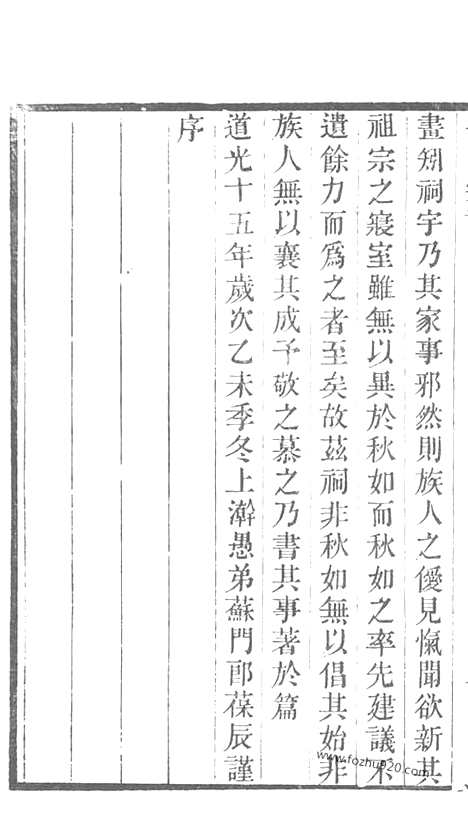 畫矧祠宇乃其家事邪然則族人之僾見愾聞欲新其
祖宗之寢室雖無以異於秋如而秋如之率先建議不
遺餘力而爲之者至矣故茲祠非秋如無以倡其始非
族人無以襄其成予敬之慕之乃書其事著於篇
道光十五年歲次乙未季冬上澣愚弟蘇門郎葆辰謹
序
www.fozhu920.com